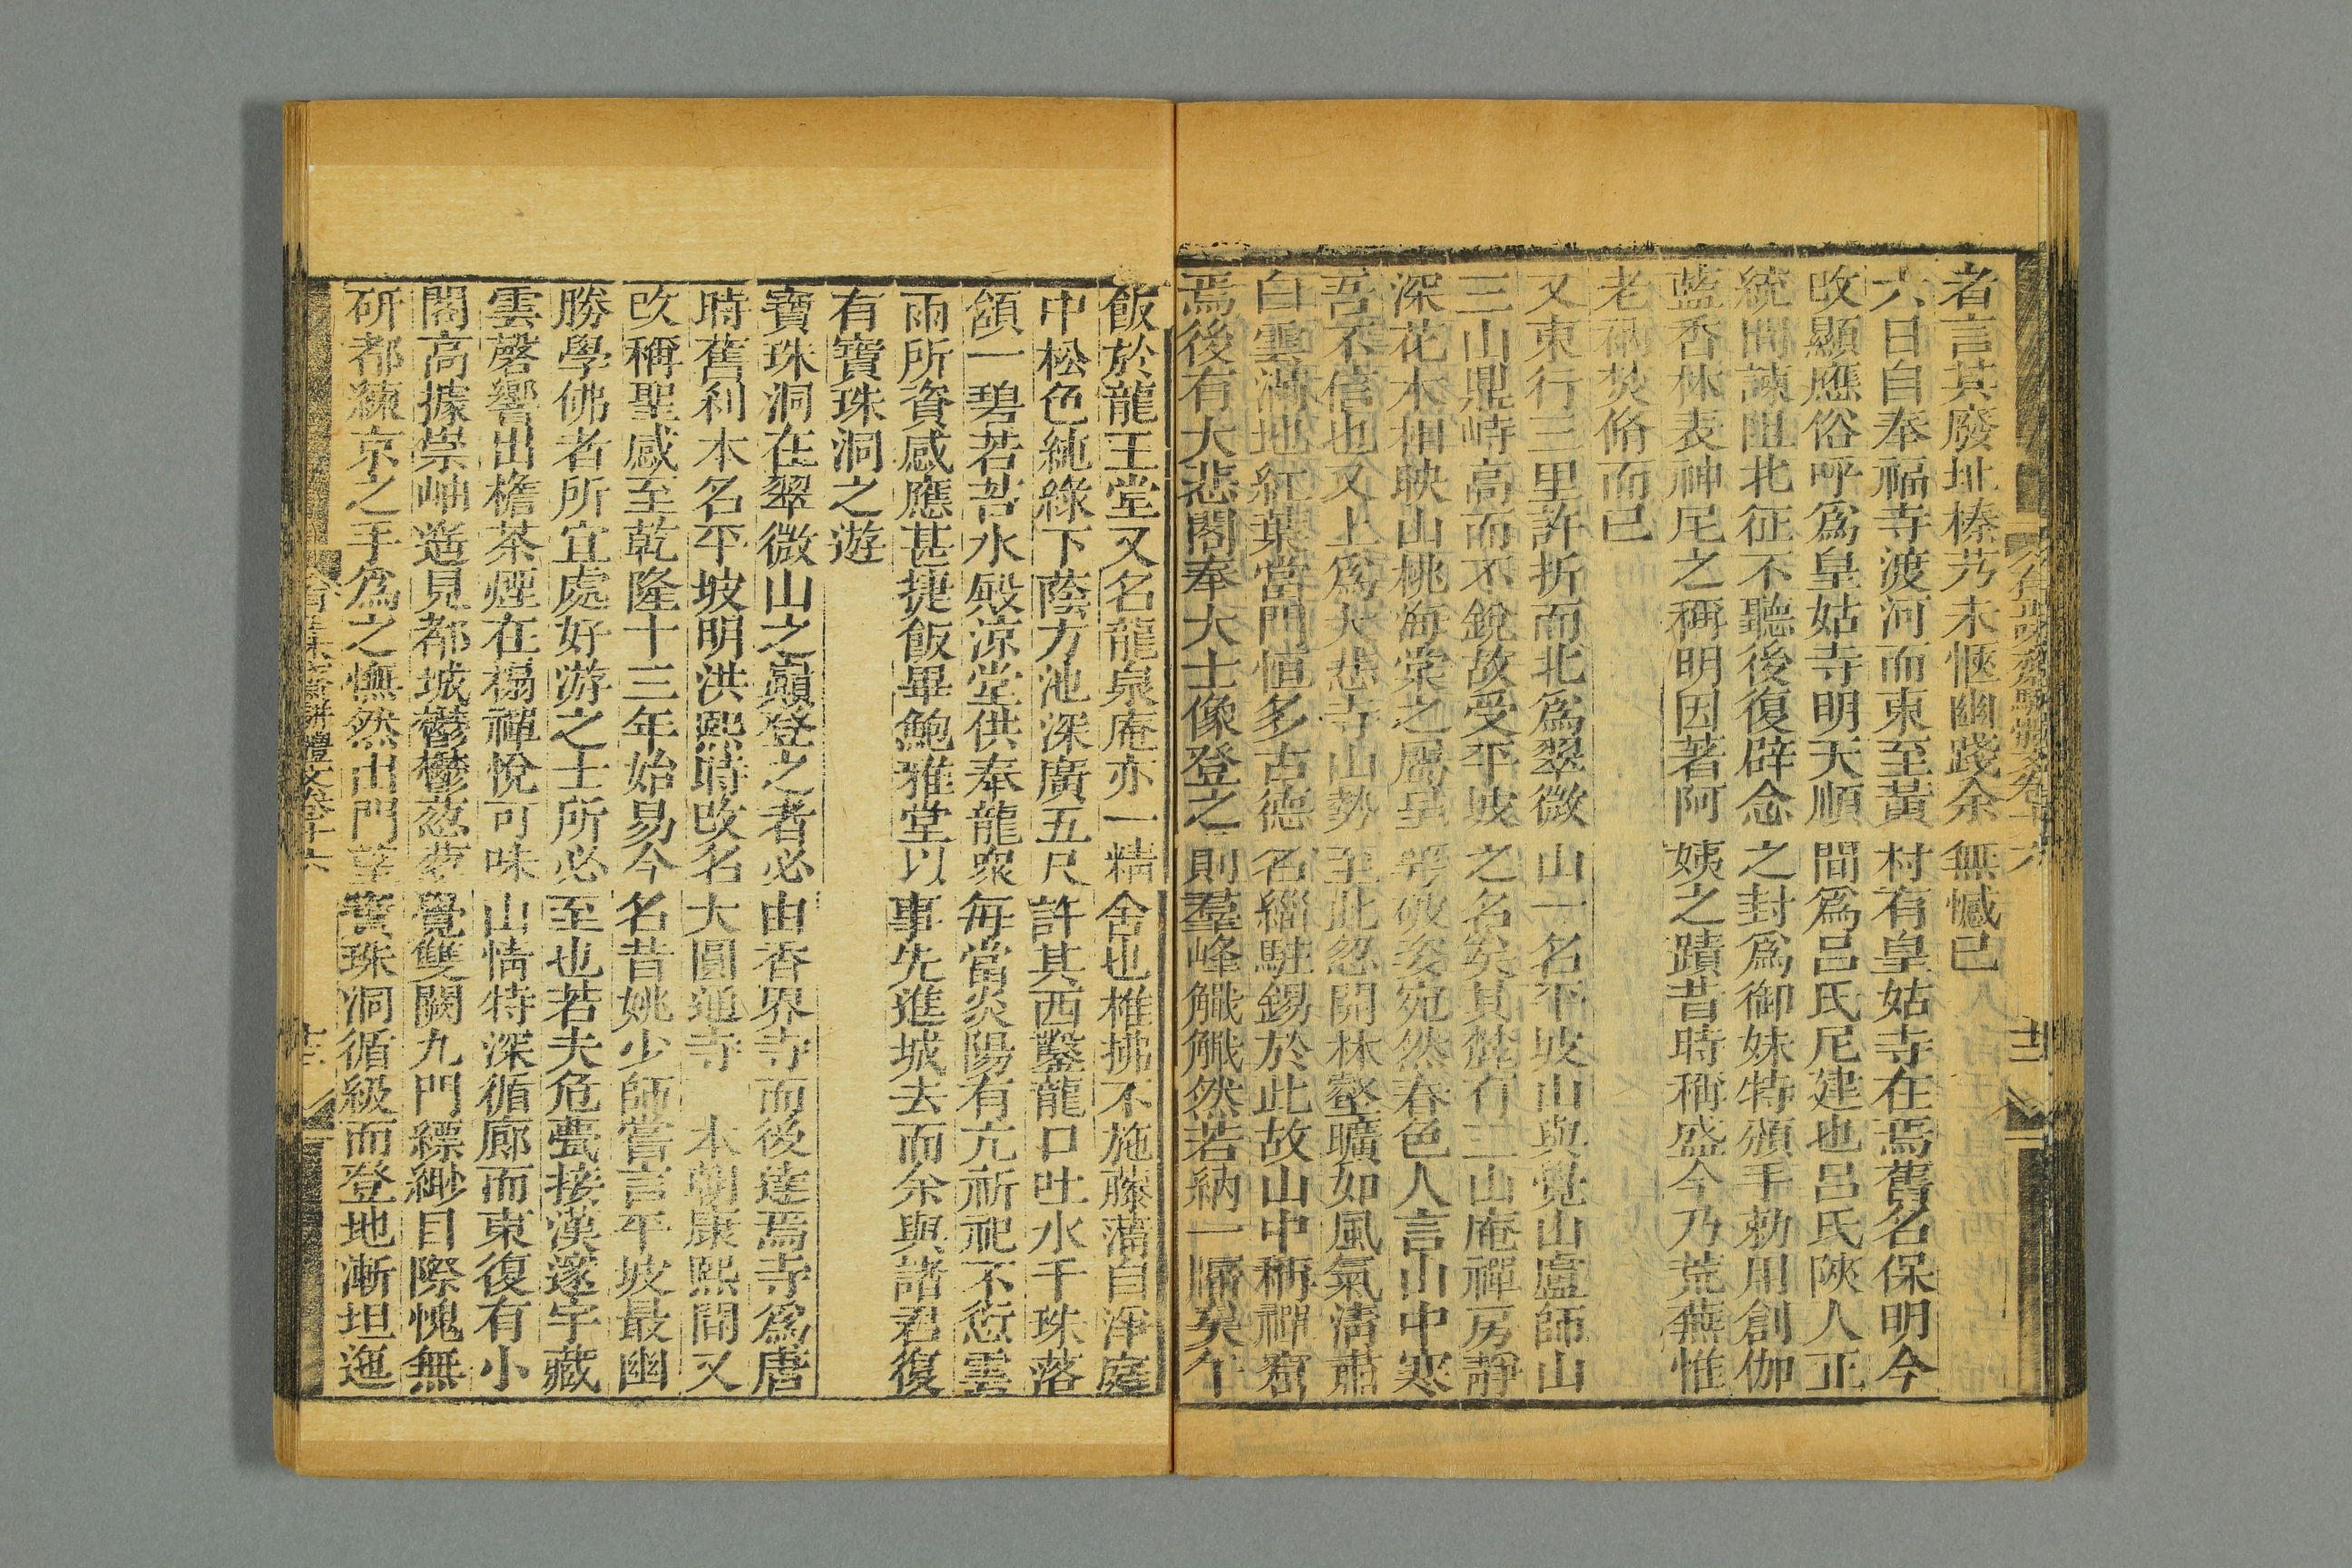 者言其廢址榛艿未愜幽踐余無憾已
六日自奉福寺渡河而東至黃村有皇姑寺在焉舊名保明今
改顯應俗呼爲皇姑寺明天順間爲呂氏尼建也呂氏陝人正
統間諫阻北征不聽後復辟念之封爲御妹特頒手勅用創伽
藍香林表神尼之稱明因著阿姨之蹟昔時稱盛今乃荒蕪惟
老衲焚脩而已
又東行三里許折而北爲翠微山一名平坡山與覺山盧師山
三山鼎峙高而不銳故受平坡之名矣其麓有三山庵禪房靜
深花木相映山桃海棠之屬呈萼破姿宛然春色人言山中寒
吾不信也又上爲大悲寺山勢至此忽開林壑曠如風氣清肅
白雲滿地紅葉當門恒多古德名緇駐錫於此故山中稱禪窟
焉後有大悲閣奉大士像登之則羣峰觽觽然若納一牖矣午
飯於龍王堂又名龍泉庵亦一精舍也椎拂不施藤蒲自淨庭
中松色純綠下蔭方池深廣五尺許其西鑿龍口吐水千珠落
頷一碧若苔水殿涼堂供奉龍眾每當炎陽有亢祈祀不愆雲
雨所資感應甚捷飯畢鮑雅堂以事先進城去而余與諸君復
有寶珠洞之遊
寶珠洞在翠微山之巔登之者必由香界寺而後達焉寺爲唐
時舊刹本名平坡明洪熙時改名大圓通寺　本朝康熙間又
改稱聖感至乾隆十三年始易今名昔姚少師嘗言平坡最幽
勝學佛者所宜處好游之士所必至也若夫危甍接漢邃宇藏
雲磬響出檐茶煙在榻禪悅可味山情特深循廊而東復有小
閣高據崇岫遥見都城鬱鬱葱葱覺雙闕九門縹緲目際愧無
研都練京之手爲之憮然出門望寶珠洞循級而登地漸坦迤